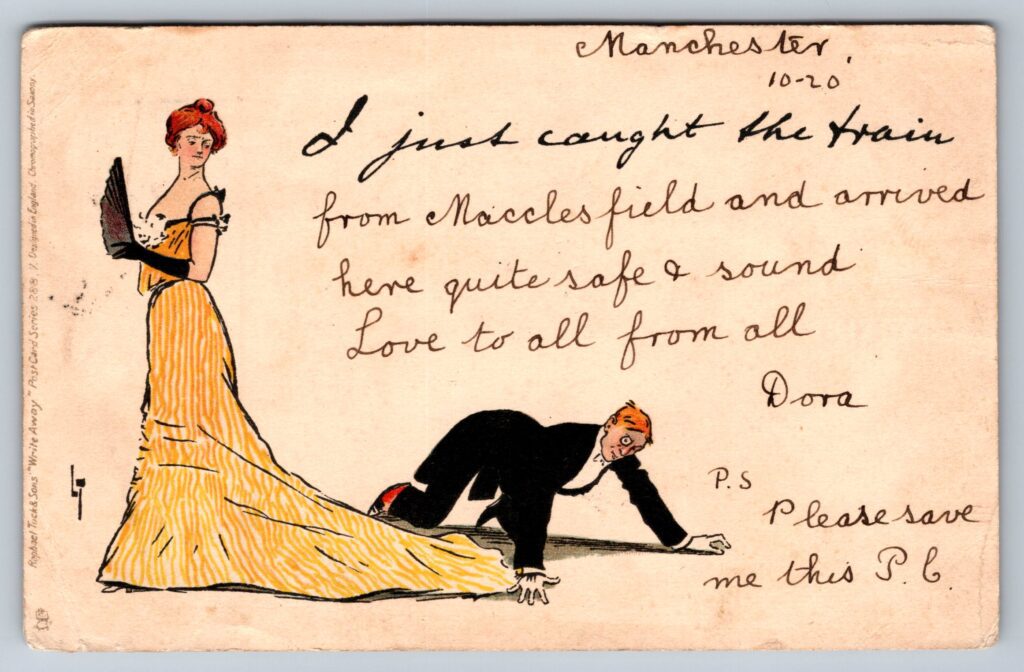 Manchester,
10-20
I just caught the train
from Macclesfield and arrived
here quite safe & sound
Love to all from all
Dora
P.S
Please save
me this P.C.
Raphael Tuck & Sons' "Write Away" Post Card Series 288. Designed in England. Chromographed in Saxony.